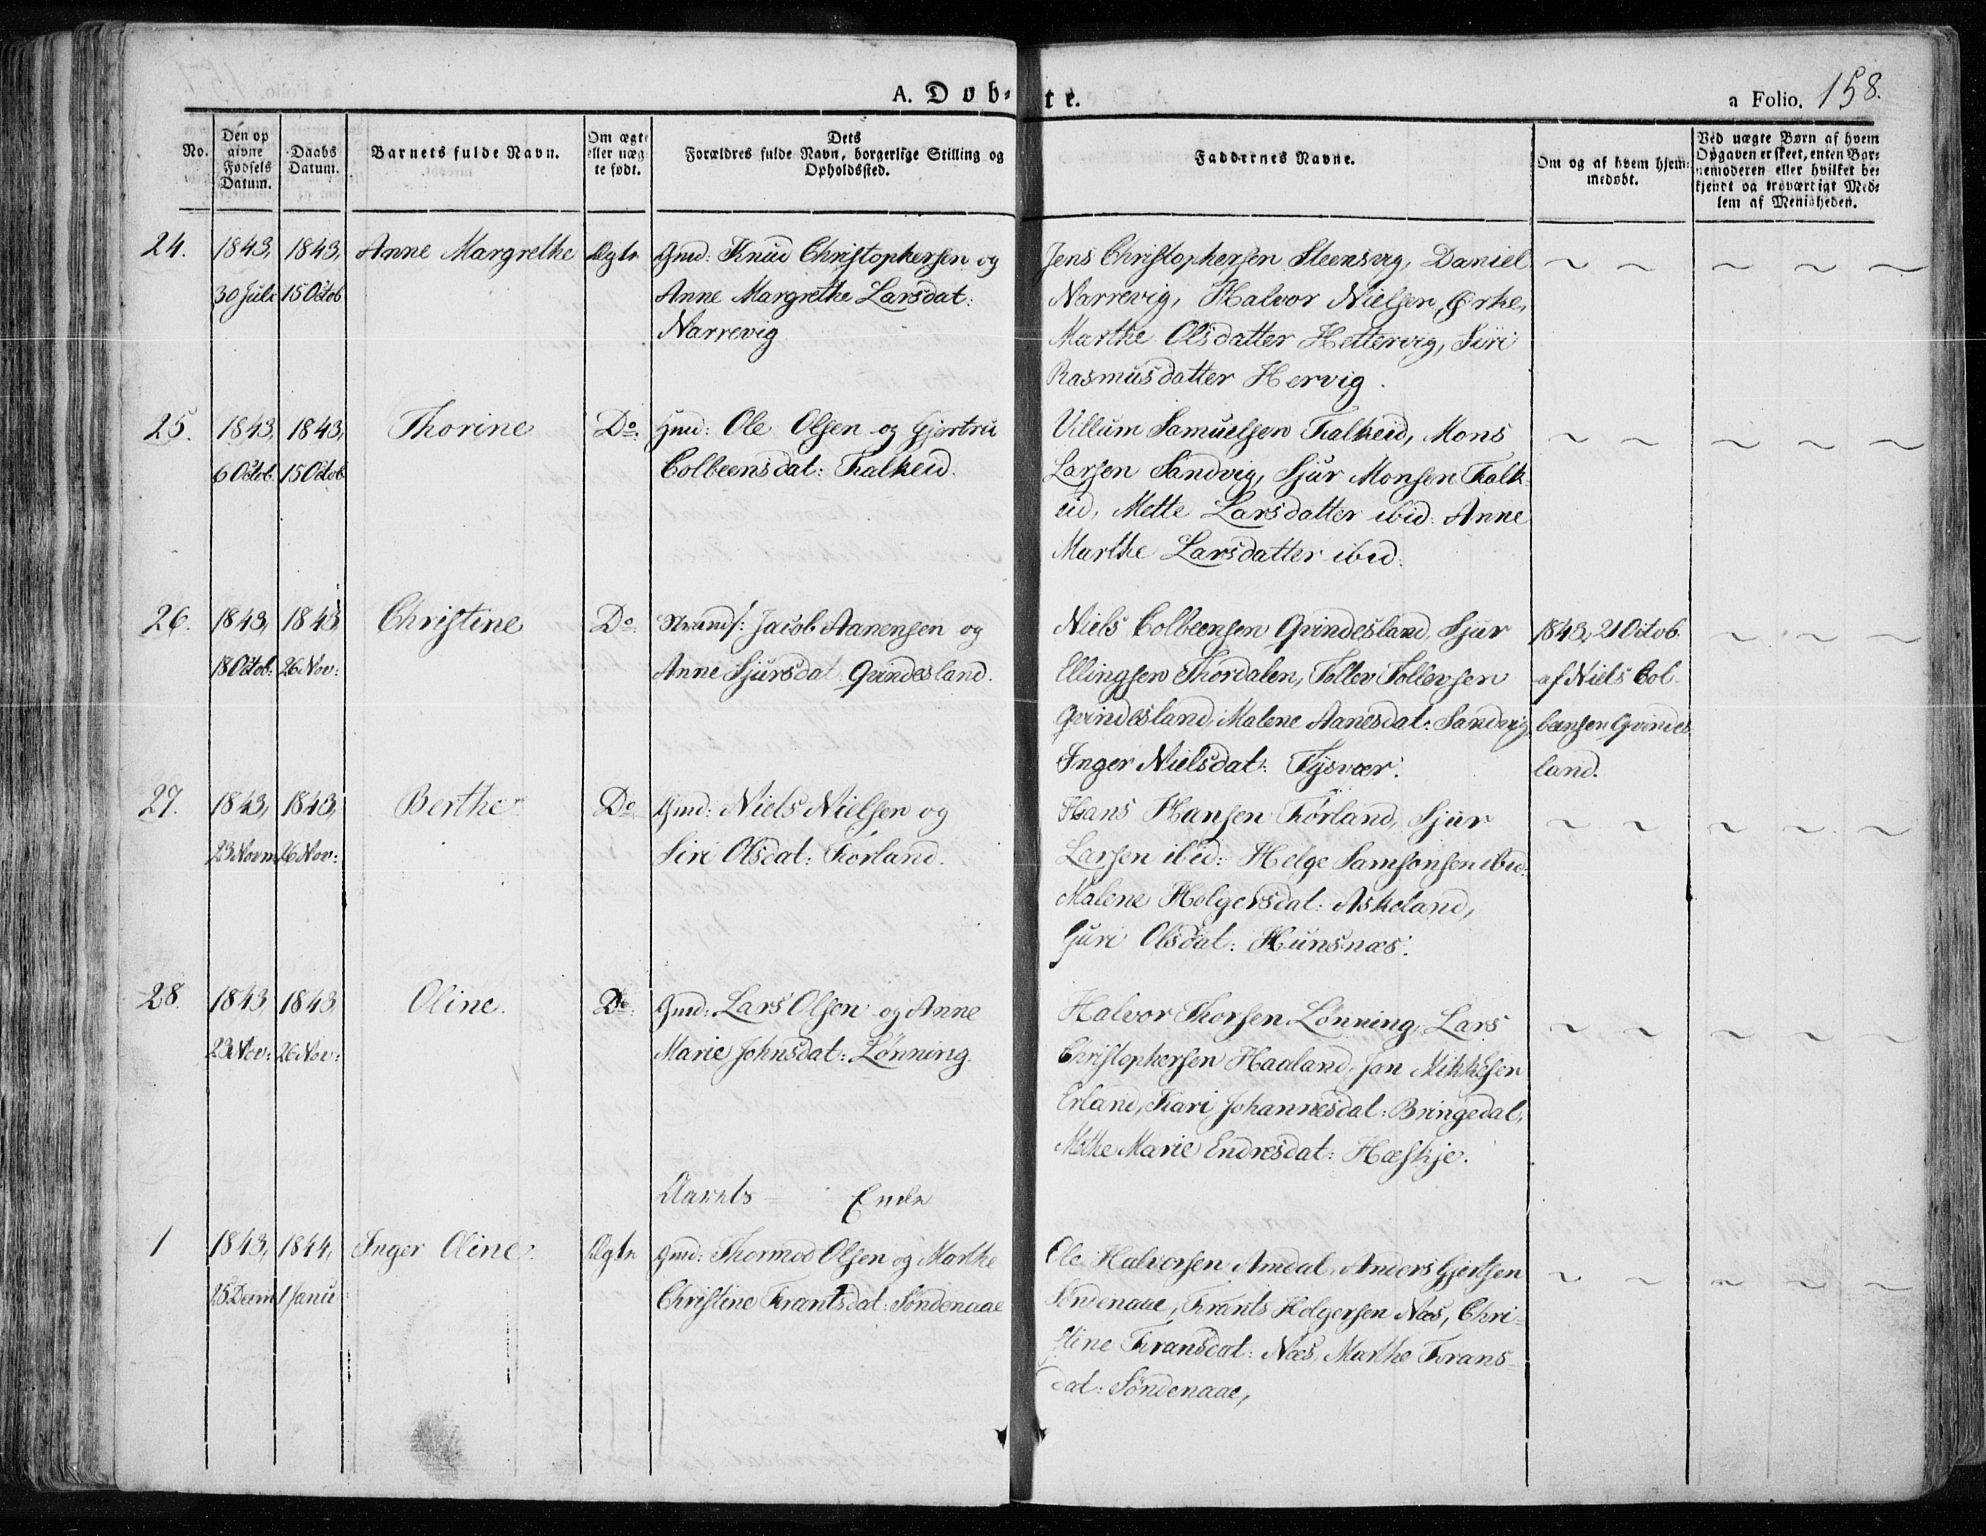 A. Døbte.
a Folio. 158.
No.
Den opgivne Fødsels Datum.
Daabs Datum.
Barnets fulde Navn.
Om ægte eller uægte født.
Dets Forældres fulde Navn, borgerlige Stilling og Opholdssted.
Faddernes Navne.
Om og af hvem hjemmedøbt.
Ved uægte Børn af hvem Opgaven er skeet, enten Barnemoderen eller hvilket bekjendt og troværdigt Medlem af Menigheden.
24.
1843,
30 Juli
1843,
15 Octob
Anne Margrethe
Ægte
Gmd: Knud Christophersen og
Anne Margrethe Larsdat:
Narrevig
Jens Christophersen Steensvig, Daniel
Narrevig, Halvor Nielsen Ørke,
Marthe Olsdatter Hettervig, Siri
Rasmusdatter Hervig.
25.
1843,
6 Octob.
1843,
15 Octob
Thorine
Do
Hmd: Ole Olsen og Gjertru
Colbeensdat: Falkeid.
Villum Samuelsen Falkeid, Mons
Larsen Sandvig, Sjur Monsen Falk-
eid, Mette Larsdatter ibid: Anne
Marthe Larsdatter ibid:
26.
1843,
18 Octob:
1843
26 Nov:
Christine
Do
Strands: Jacob Aanensen og
Anne Sjursdat: Qvindesland.
Niels Colbeensen Qvindesland, Sjur
Ellingsen Thordalen, Tollev Tollevsen
Qvindesland, Malene Aanesdat: Sandvig,
Inger Nielsdat: Tysvær.
1843, 21 Octob.
af Niels Col-
beensen Qvindes
land.
27.
1843,
23 Novm
1843,
26 Nov:
Berthe
Do
Gmd: Niels Nielsen og
Siri Olsdat: Førland.
Hans Hansen Førland, Sjur
Larsen ibid: Helge Samsonsen ibid:
Malene Holgersdat: Askeland,
Guri Olsdat: Hunsnæs.
28.
1843
23 Nov:
1843
26 Nov:
Oline.
Do
Gmd: Lars Olsen og Anne
Marie Johnsdat: Lønning.
Halvor Thorsen Lønning, Lars
Christophersen Haaland, Jan Mikkelsen
Erland, Kari Johannesdat: Bringedal,
Marie Endresdat: Hæskje.
Aarets Ende
1
1843,
25 Decm
1844,
1 Janu
Inger Oline.
Ægte
Gmd: Thormod Olsen og Marthe
Christine Frantsdat: Søndenaae
Ole Halvorsen Amdal, Anders Gjertsen
Søndenaae, Frants Holgersen Næs, Chri-
stine Fransdat: Næs, Marthe Frans-
dat: Søndenaae,